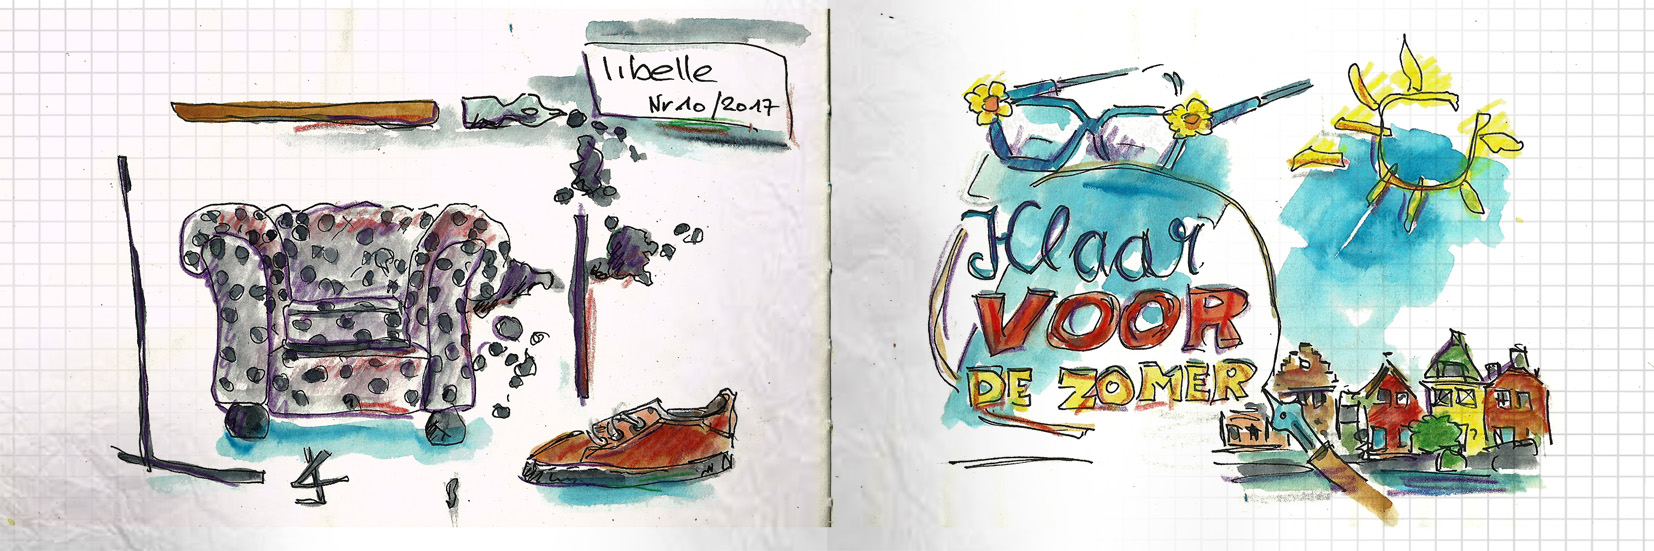 libelle
Nr 10/2017
Klaar
VOOR
DE ZOMER